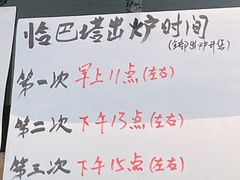 恰巴塔出炉时间
(全部出炉开售)
第一次 早上11点(左右)
第二次 下午13点(左右)
第三次 下午15点(左右)